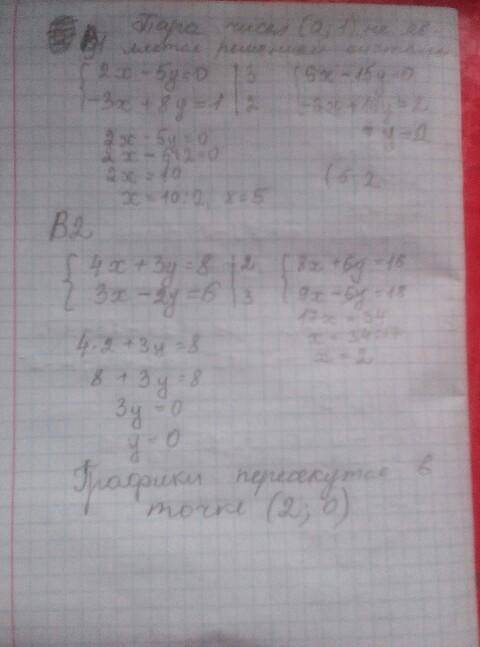 Пара чисел (0; 1) не яв-
ляется решением системы
{ 2x - 5y = 0 | 3 { 6x - 15y = 0
{ -3x + 8y = 1 | 2 { -6x + 16y = 2
y = 2
2x - 5y = 0
2x - 5·2 = 0
2x = 10
x = 10:2, x = 5
(5; 2
B2
{ 4x + 3y = 8 | 2 { 8x + 6y = 16
{ 3x - 2y = 6 | 3 { 9x - 6y = 18
17x = 34
x = 34:17
x = 2
4·2 + 3y = 8
8 + 3y = 8
3y = 0
y = 0
Графики пересекутся в
точке (2; 0)